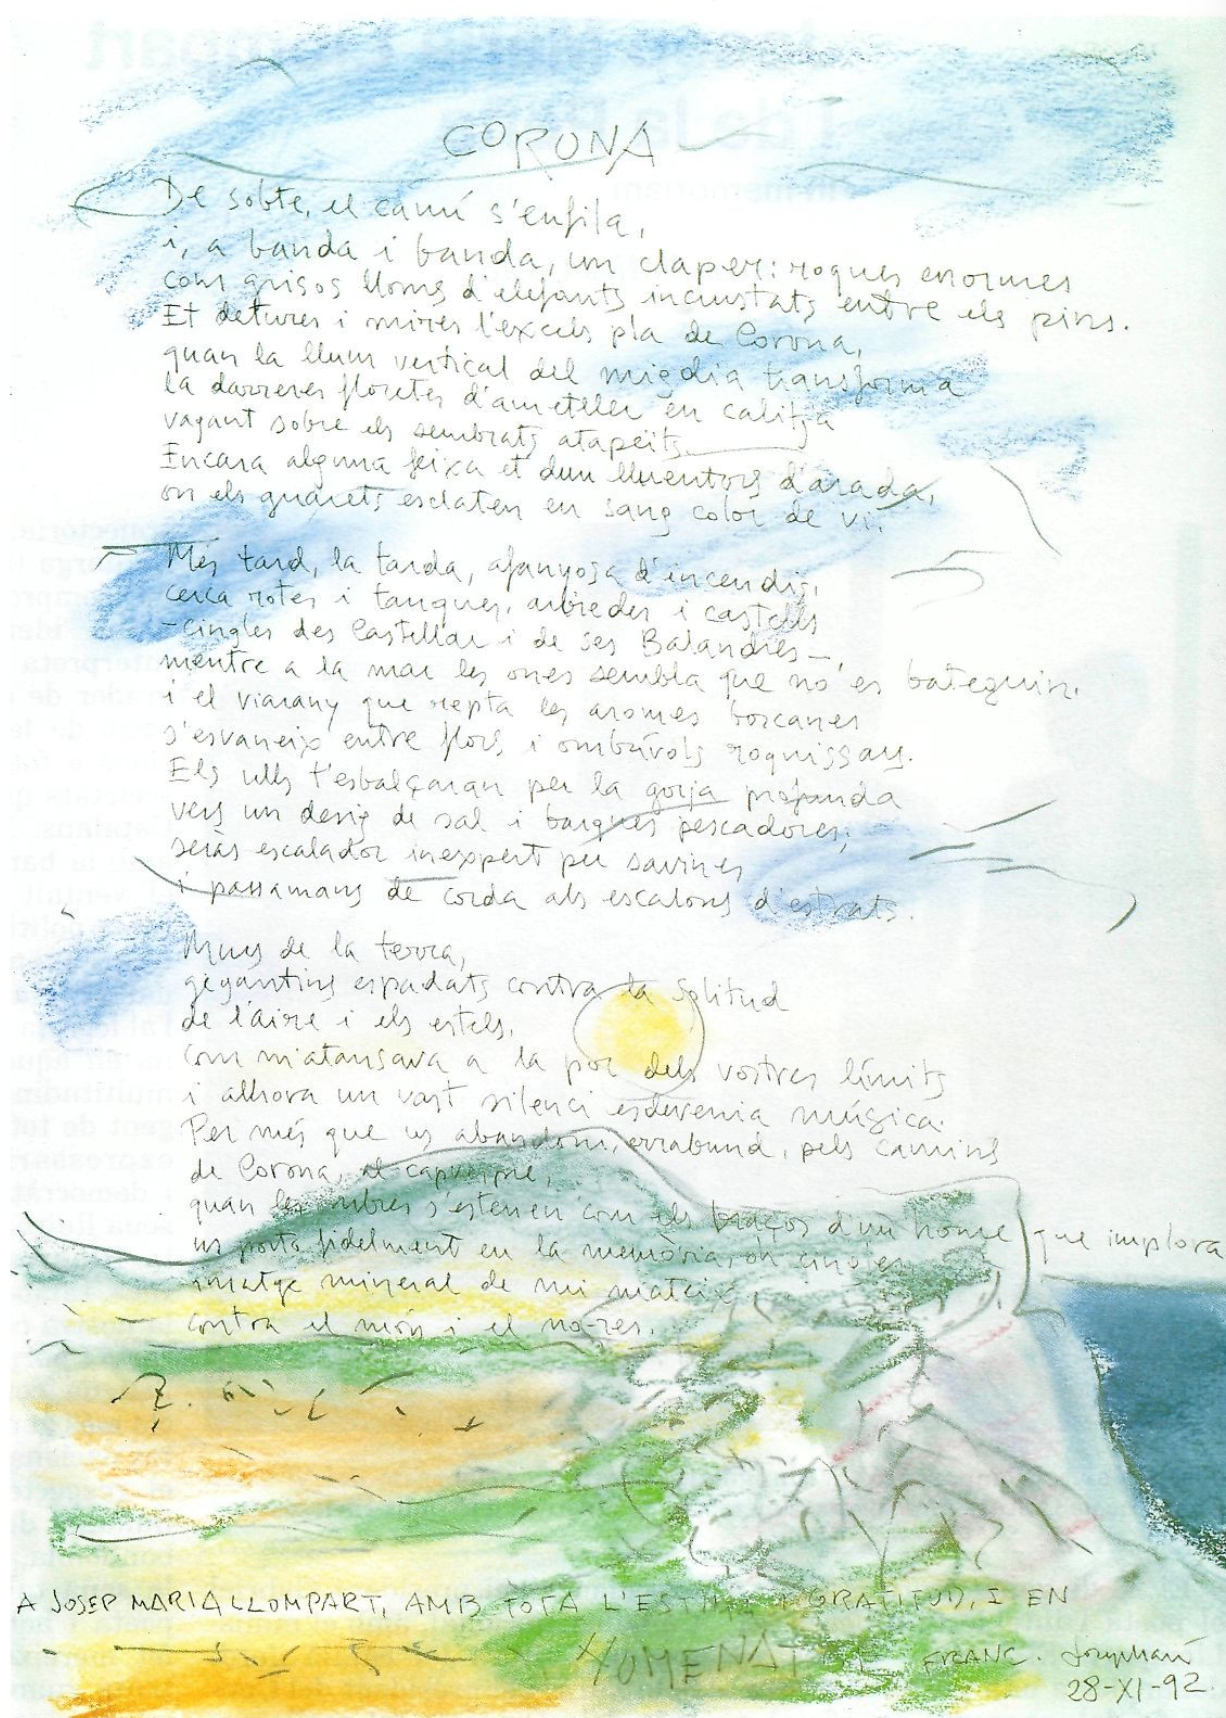 CORONA
De sobte, el camí s'enfila,
i, a banda i banda, un claper: roques enormes
com grisos lloms d'elefants incrustats entre els pins.
Et detures i mires l'excels pla de Corona,
quan la llum vertical del migdia transforma
la darreres floretes d'ametller en calitja
vagant sobre els sembrats atapeïts.
Encara alguna feixa et duu lluentors d'arada,
on els guarets esclaten en sang color de vi.
Més tard, la tarda, afanyosa d'incendis,
cerca rotes i tanques, arbredes i castells
-cingles des Castellar i de Ses Balandres-,
mentre a la mar les ones sembla que no es bateguin.
i el viarany que repta les aromes boscanes
s'esvaneix entre flors i ombrívols roquissars.
Els ulls t'esbalçaran per la gorja profunda
vers un desig de sal i barques pescadores;
seràs escalador inexpert per savines
i passamans de corda als escalons d'estrats.
Murs de la terra,
gegantins espadats contra la solitud
de l'aire i els estels,
com m'atansava a la por dels vostres límits
i alhora un vast silenci esdevenia música.
Per més que us abandoni, errabund, pels camins
de Corona, al capvespre,
quan les ombres s'estenen com els braços d'un home que implora
us porto fidelment en la memòria, oh cingles
imatge mineral de mi mateix
contra el món i el no-res.
A JOSEP MARIA LLOMPART, AMB TOTA L'ESTIMA I GRATITUD, I EN
HOMENATGE
FRANC.
28-XI-92